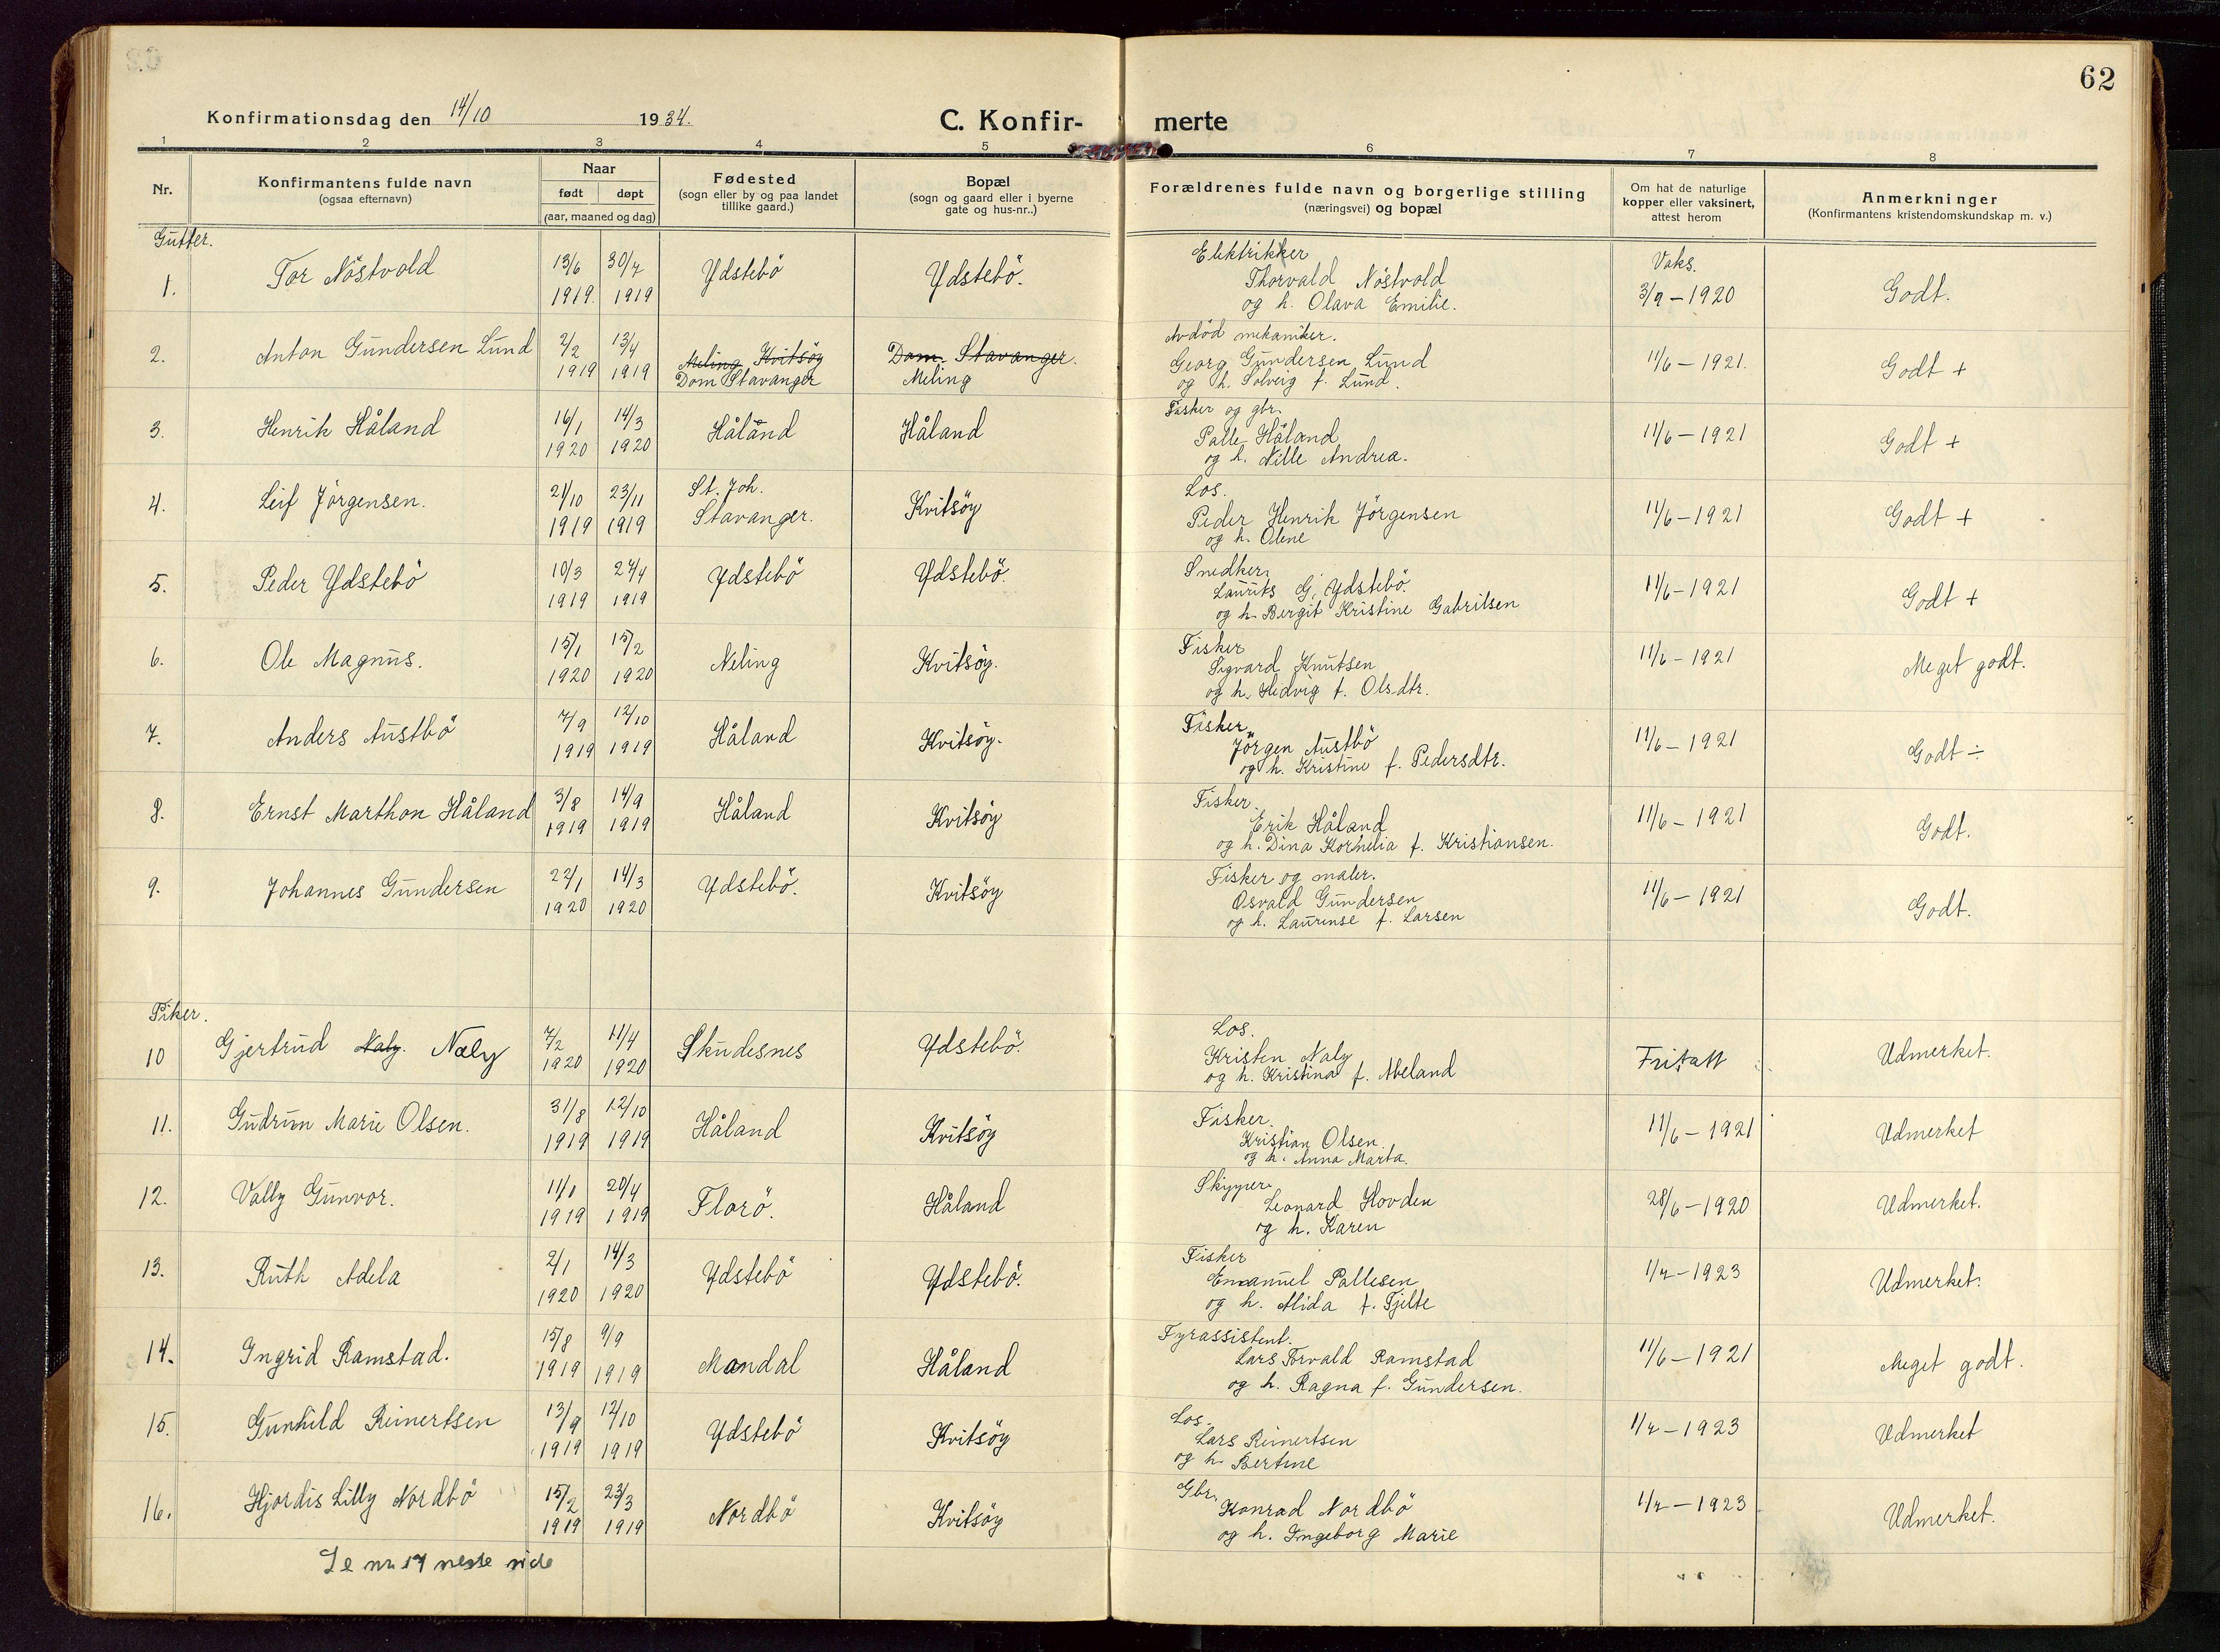 62
Konfirmationsdag den 14/10 1934.
C. Konfir- merte
1 2 3 4 5 6 7 8
Nr.
Konfirmantens fulde navn
(ogsaa efternavn)
Naar
født døpt
(aar, maaned og dag)
Fødested
(sogn eller by og paa landet
tillike gaard.)
Bopæl
(sogn og gaard eller i byerne
gate og hus-nr..)
Forældrenes fulde navn og borgerlige stilling
(næringsvei) og bopæl
Om hat de naturlige
kopper eller vaksinert,
attest herom
Anmerkninger
(Konfirmantens kristendomskundskap m. v.)
Gutter.
1. Tor Nöstvold 13/6 1919. 30/7 1919 Ydstebö Ydstebö.
Elektrikker
Thorvald Nöstvold
og h. Olava Emilie.
Vaks.
3/9 – 1920
Godt.
2. Anton Gundersen Lund 2/2 1919 13/4 1919
Meling Kvitsöy
Dom Stavanger
Dom. Stavanger.
Meling
Avdöd mekaniker.
Georg Gundersen Lund
og h. Solveig f. Lund.
11/6 – 1921.
Godt +
3. Henrik Håland 16/1 1920 14/3 1920 Håland Håland
Fisker og gbr.
Palle Håland
og h. Nille Andrea.
11/6 – 1921
Godt +
4. Leif Jörgensen. 21/10 1919 23/11 1919
St. Joh.
Stavanger.
Kvitsöy
Los.
Peder Henrik Jörgensen
og h. Olene
11/6 – 1921
Godt +
5. Peder Ydstebö 10/3 1919 27/4 1919 Ydstebö Ydstebö.
Snedker.
Laurits G. Ydstebö.
og h. Bergit Kristine Gabrilsen
11/6 – 1921
Godt +
6. Ole Magnus. 15/1 1920 15/2 1920 Meling Kvitsöy.
Fisker
Sigvard Knutsen
og h. Hedvig f. Olsdtr.
11/6 – 1921
Meget godt.
7. Anders Austbö 7/9 1919 12/10 1919 Håland Kvitsöy.
Fisker
Jörgen Austbö
og h. Kristine f. Pedersdtr.
11/6 – 1921
Godt ÷
8. Ernst Marthon Håland 3/8 1919 14/9 1919 Håland Kvitsöy
Fisker
Erik Håland
og h. Dina Kornelia f. Kristiansen.
11/6 – 1921
Godt.
9. Johannes Gundersen 22/1 1920 14/3 1920 Ydstebö. Kvitsöy
Fisker og maler.
Osvald Gundersen
og h. Laurense f. Larsen
11/6 – 1921
Godt.
Piker.
10 Gjertrud Naly. Næly 7/2 1920 11/4 1920 Skudesnes Ydstebö.
Los.
Kristen Naly
og h. Kristina f. Abeland
Fritatt
Udmerket.
11. Gudrun Marie Olsen. 31/8 1919 12/10 1919 Håland Kvitsöy
Fisker.
Kristian Olsen.
og h. Anna Marta.
11/6 – 1921
Udmerket
12. Vally Gunvor. 11/1 1919 20/4 1919 Florö. Håland
Skipper
Leonard Hovden
og h. Karen
28/6 – 1920
Udmerket.
13. Ruth Adela 2/1 1920 14/3 1920 Ydstebö Ydstebö.
Fisker
Emanuel Pallesen
og h. Alida f. Fjelte
1/7 – 1923
Udmerket.
14. Ingrid Ramstad. 15/8 1919 9/9 1919 Mandal Håland
Fyrassistent.
Lars Torvald Ramstad
og h. Ragna f. Gundersen.
11/6 – 1921
Meget godt.
15. Gunhild Reinertsen 13/9 1919 12/10 1919 Ydstebö Kvitsöy
Los.
Lars Reinertsen
og h. Bertine
1/7 – 1923
Udmerket
16. Hjordis Lilly Nordbö 15/2 1919 23/3 1919 Nordbö Kvitsöy
Gbr.
Konrad Nordbö
og h. Ingeborg Marie
1/7 – 1923
Udmerket.
Se nr 17 neste side